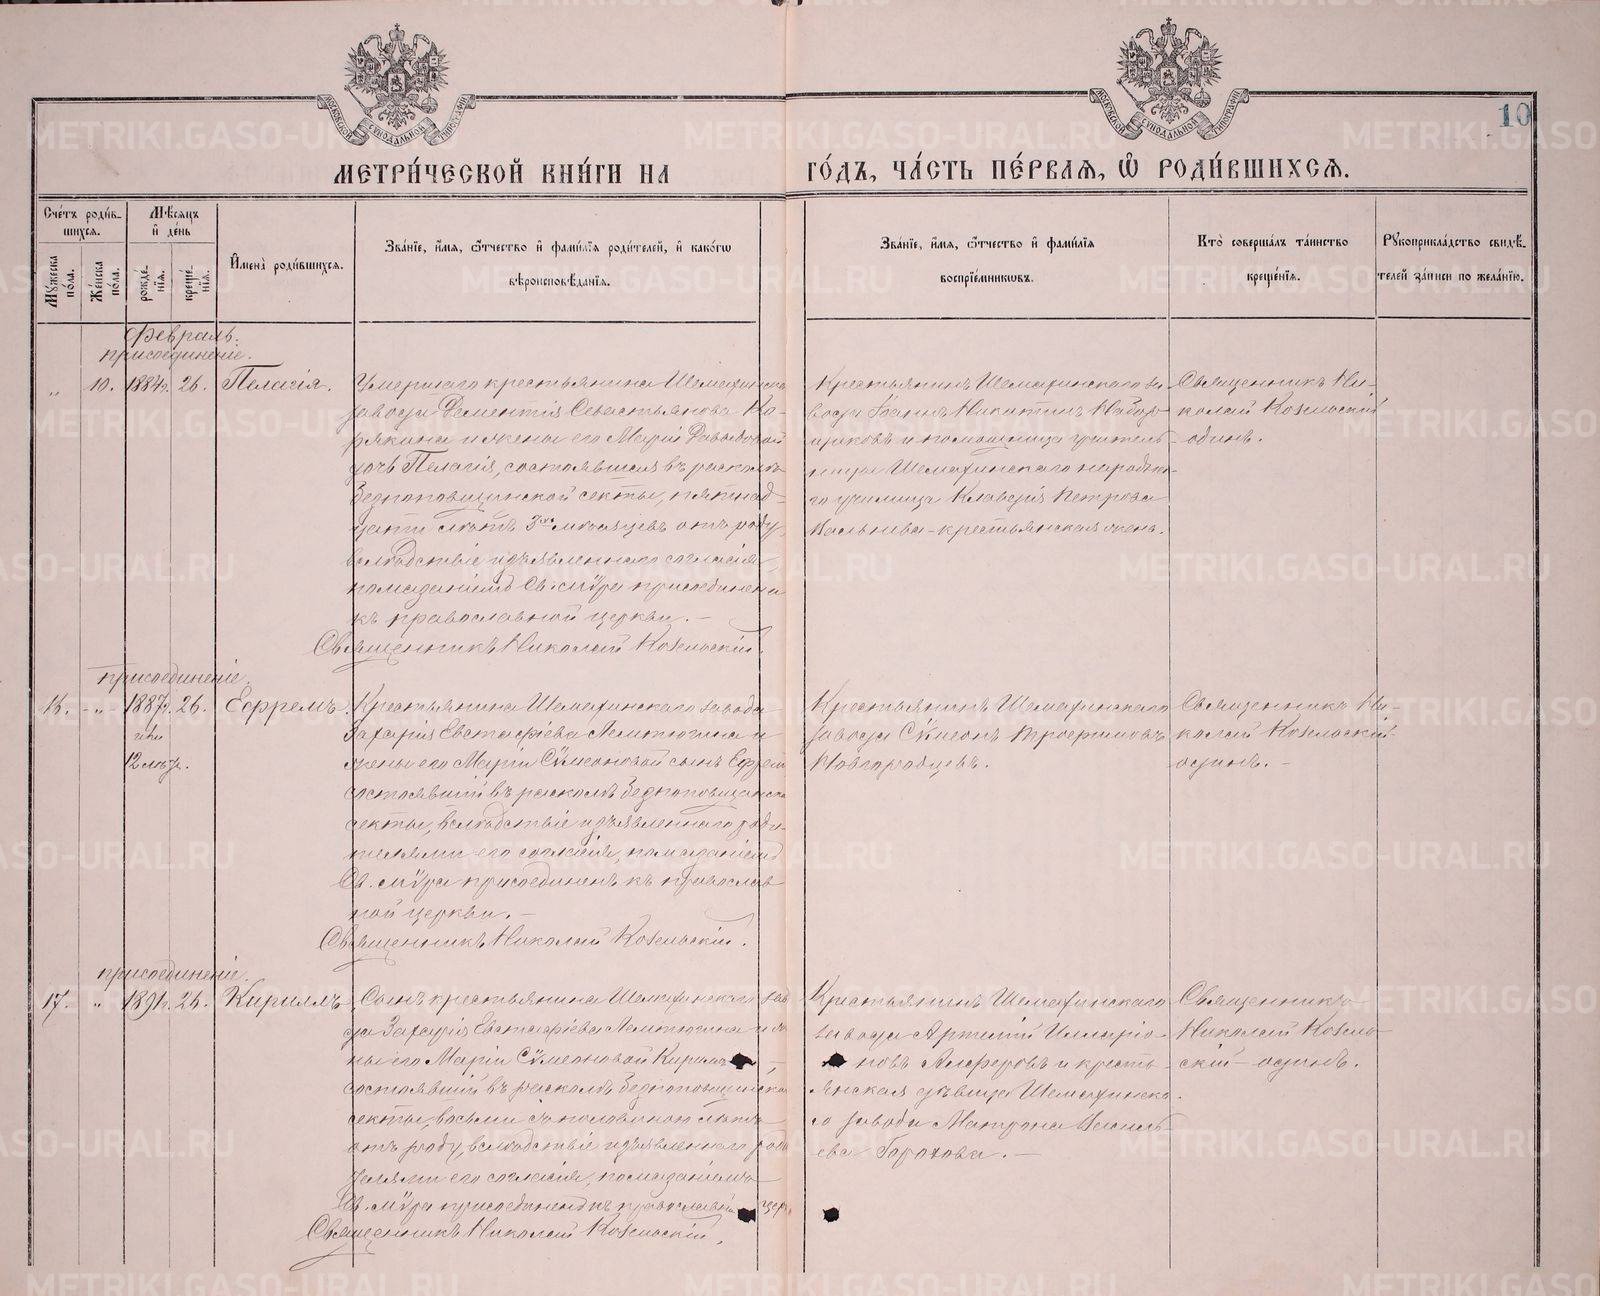 МОСКОВСКОЙ СУНОДАЛЬНОЙ ТИПОГРАФІИ
МОСКОВСКОЙ СУНОДАЛЬНОЙ ТИПОГРАФІИ
10
МЕТРИ́ЧЕСКОЙ КНИ́ГИ НА ГО́ДЪ, ЧА́СТЬ ПЕ́РВАЯ, Ѿ РОДИ́ВШИХСЯ.
Сче́тъ роди́в-
шихся.
Му́жеска по́ла.
Же́нска по́ла.
Мѣ́сяцъ и де́нь
рожде́нїя.
креще́нїя.
Имена̀ роди́вшихся.
Зва́нїе, и́мя, ѻ́тчество и фами́лїя роди́телей, и како́гѡ
вѣроисповѣ́данїя.
Зва́нїе, и́мя, ѻ́тчество и фами́лїя
воспрїе́мникѡвъ.
Кто̀ соверша́лъ та́инство
креще́нїя.
Рукоприкла́дство свидѣ́-
телей за́писи по жела́нїю.
Февраль.
присоединеніе.
„ 10. 1884г. 26. Пелагія.
Умершаго крестьянина Шемахинска
завода Дементія Севастьянова Ко-
рякина и жены его Маріи Давыдовой
дочь Пелагія, состоявшая въ расколѣ
Безпоповщинской секты, пятнад-
цати лѣтъ 3хъ мѣсяцевъ отъ роду,
вслѣдствіе изъявленнаго согласія,
помазаніемъ Св. мѵра присоединена
къ православной церкви. –
Священникъ Николай Козельскій.
Крестьянинъ Шемахинскаго за-
вода Іоаннъ Никитинъ Набор-
щиковъ и помощница учитель-
ницы Шемахинскаго народна-
го училища Клавдія Петрова
крестьянская
Священникъ Ни-
колай Козельскій
одинъ.
присоединеніе.
16. „ 1887г. 26. Ефремъ.
12 мѣс.
Крестьянина Шемахинскаго завода
Захарія Евстафіева Лемтюгина и
жены его Маріи Сѵмеоновой сынъ Ефрем
состоявшій въ расколѣ Безпоповщинско
секты, вслѣдствіе изъявленнаго роди-
телями его согласія, помазаніемъ
Св. мѵра присоединенъ къ православ
ной церкви. –
Священникъ Николай Козельскій.
Крестьянинъ Шемахинскаго
завода Сѵмеонъ Трофимовъ
Новгородцевъ.
Священникъ Ни-
колай Козельскій
одинъ. –
присоединеніе.
17. „ 1891г. 26. Кириллъ.
Сынъ крестьянина Шемахинскаго заво
да Захарія Евстафіева Лемтюгина и же
ны его Маріи Сѵмеоновой Кириллъ,
состоявшій въ расколѣ Безпоповщинской
секты, восьми съ половиною лѣтъ
отъ роду, вслѣдствіе изъявленнаго роди
телями его согласія, помазаніемъ
Св. мѵра присоединенъ къ православной цер.
Священникъ Николай Козельскій.
Крестьянинъ Шемахинскаго
завода Артемій Илларіо-
новъ Алферовъ и кресть-
янская дѣвица Шемахинска-
го завода Матрона Василь-
ева Горохова. –
Священникъ
Николай Козель-
скій – одинъ.
METRIKI.GASO-URAL.RU